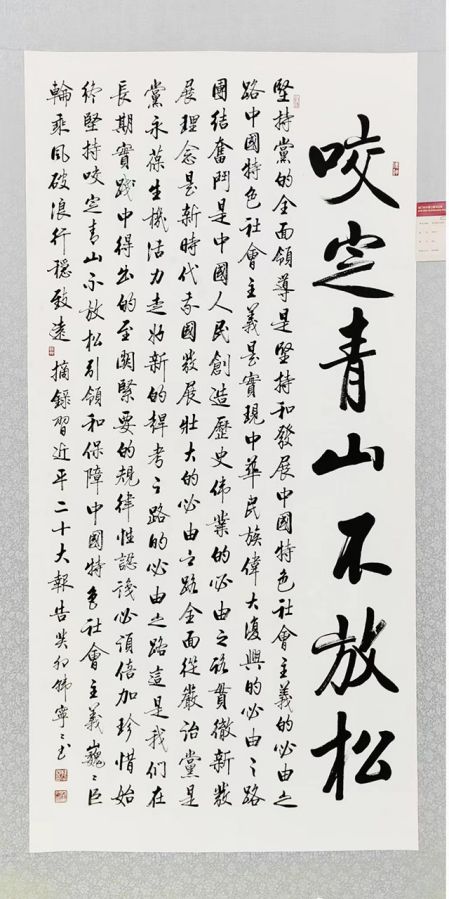 咬定青山不放松
堅持黨的全面領導是堅持和發展中國特色社會主義的必由之
路中國特色社會主義是實現中華民族偉大復興的必由之路
團結奮鬥是中國人民創造歷史偉業的必由之路貫徹新發
展理念是新時代我國發展壯大的必由之路全面從嚴治黨是
黨永葆生機活力走好新的趕考之路的必由之路這是我们在
長期實踐中得出的至關緊要的規律性認識必須倍加珍惜始
終堅持咬定青山不放松引領和保障中國特色社會主義巍巍巨
輪乘风破浪行穩致遠 摘錄習近平二十大報告